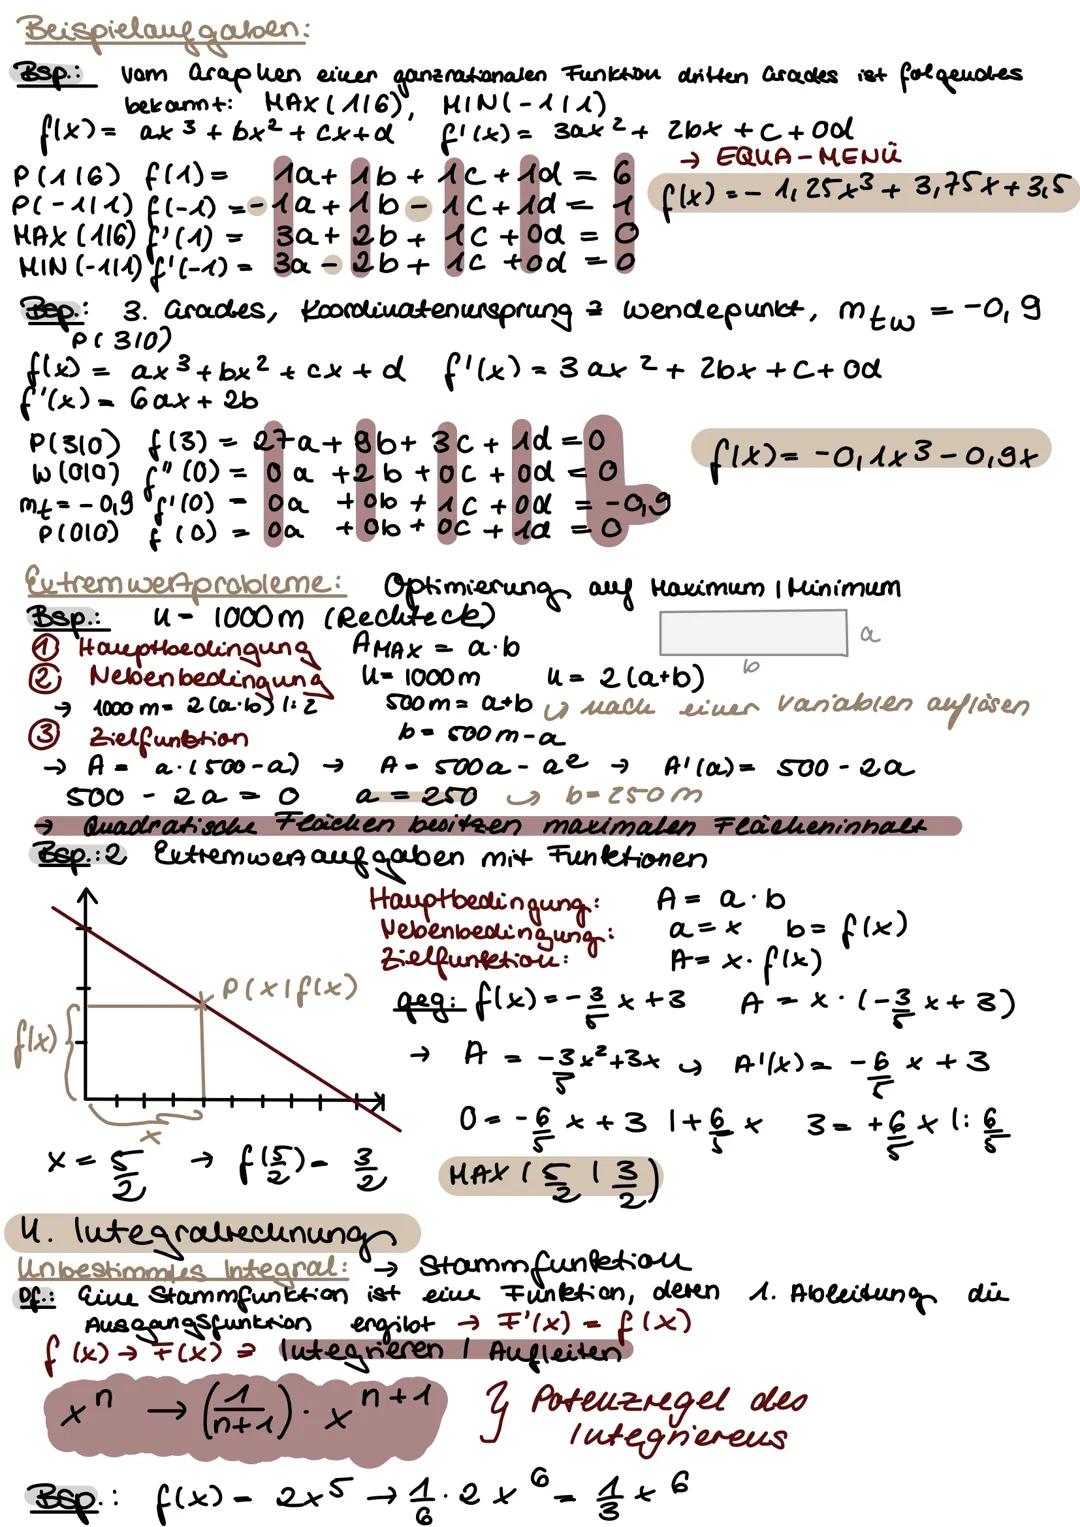 Beispielaufgaben:
Bsp.: vom Graphen einer ganzrationalen Funktion dritten Grades ist folgendes
bekannt: MAX(1|6), MIN(-1|1)
f(x) = ax³ + bx² + cx + d f'(x) = 3ax² + 2bx + c + 0d
→ EQUA-MENÜ
P(1|6) f(1) = 1a + 1b + 1c + 1d = 6
f(x) = - 1,25x³ + 3,75x + 3,5
P(-1|1) f(-1) = -1a + 1b - 1c + 1d = 1
MAX(1|6) f'(1) = 3a + 2b + 1c + 0d = 0
MIN(-1|1) f'(-1) = 3a - 2b + 1c + 0d = 0
Bsp.: 3. Grades, Koordinatenursprung = Wendepunkt, mtw = -0,9
P(3|0)
f(x) = ax³ + bx² + cx + d f'(x) = 3ax² + 2bx + c + 0d
f''(x) = 6ax + 2b
P(3|0) f(3) = 27a + 9b + 3c + 1d = 0
f(x) = -0,1x³ - 0,9x
W(0|0) f''(0) = 0a + 2b + 0c + 0d = 0
mt = -0,9 f'(0) = 0a + 0b + 1c + 0d = -0,9
P(0|0) f(0) = 0a + 0b + 0c + 1d = 0
Extremwertprobleme: Optimierung auf Maximum | Minimum
Bsp.: U = 1000 m (Rechteck)
a
b
① Hauptbedingung AMAX = a·b
② Nebenbedingung U = 1000 m U = 2(a+b)
→ 1000 m = 2(a·b) |:2 500 m = a+b ↪ nach einer Variablen auflösen
③ Zielfunktion b = 500 m - a
→ A = a·(500-a) → A = 500a - a² → A'(a) = 500 - 2a
500 - 2a = 0 a = 250 ↪ b = 250 m
→ Quadratische Flächen besitzen maximalen Flächeninhalt
Bsp.: 2 Extremwertaufgaben mit Funktionen
Hauptbedingung: A = a·b
Nebenbedingung: a = x b = f(x)
Zielfunktion: A = x·f(x)
P(x|f(x)
f(x)
x
geg: f(x) = -3/5 x + 3 A = x·(-3/5 x + 3)
→ A = -3/5 x² + 3x ↪ A'(x) = -6/5 x + 3
0 = -6/5 x + 3 |+6/5 x 3 = +6/5 x |: 6/5
x = 5/2 → f(5/2) = 3/2 MAX (5/2 | 3/2)
4. Integralrechnung
Unbestimmtes Integral: → Stammfunktion
Df.: Eine Stammfunktion ist eine Funktion, deren 1. Ableitung die
Ausgangsfunktion ergibt → F'(x) = f(x)
f(x) → F(x) = Integrieren | Aufleiten
xⁿ → (1/n+1) · xⁿ⁺¹ } Potenzregel des
Integrierens
Bsp.: f(x) = 2x⁵ → 1/6 · 2x⁶ = 1/3 x⁶